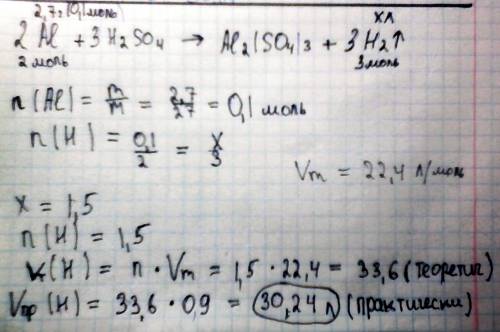 2,7г (0,1 моль) хл
2Al + 3H₂SO₄ → Al₂(SO₄)₃ + 3H₂↑
2 моль 3 моль
n(Al) = m/m = 2,7/27 = 0,1 моль
n(H) = 0,1/2 = x/3
Vm = 22,4 л/моль
x = 1,5
n(H) = 1,5
V(H) = n · Vm = 1,5 · 22,4 = 33,6 (теоретич)
Vпр(H) = 33,6 · 0,9 = 30,24 л (практически)